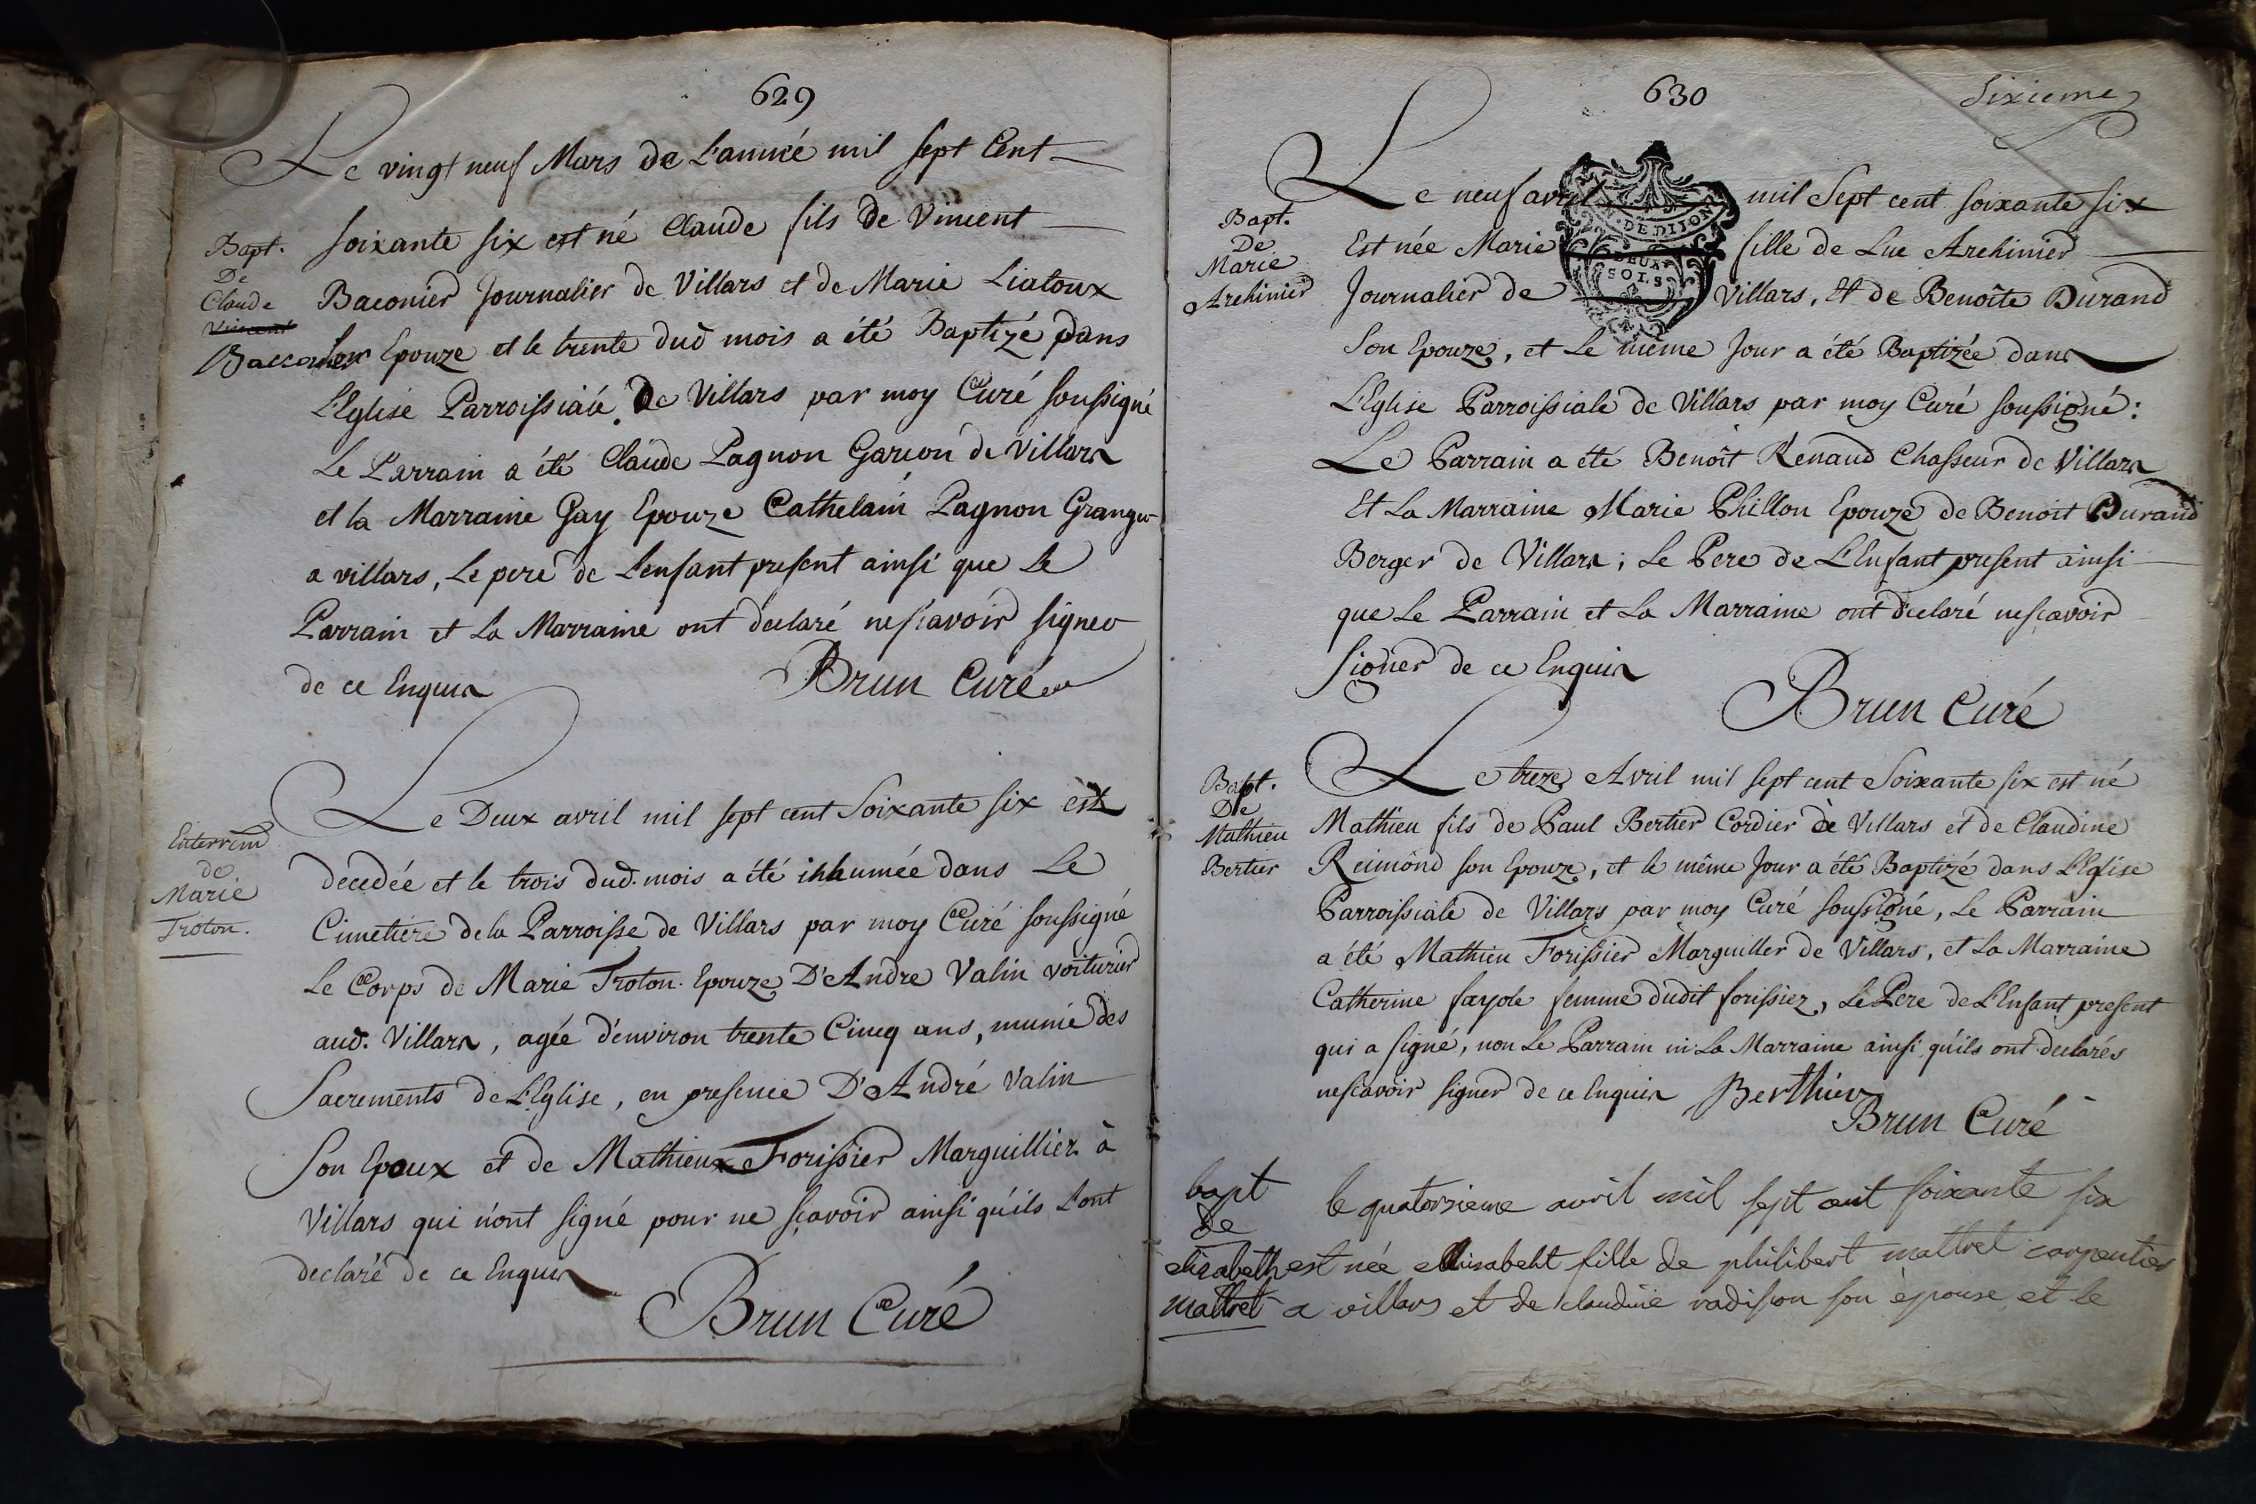 629
Le vingt neuf Mars de L'année mil sept Cent
soixante six est né Claude fils de Vincent
Baconier Journalier de Villars et de Marie Liatoux
son Epouze et le trente dud mois a été Baptizé dans
L'Eglise Parroissiale de Villars par moy Curé soussigné
Le Parrain a été Claude Pagnon Garcon de Villars
et la Marraine Gay Epouze Cathelain Pagnon Granger
a villars, Le pere de L'enfant present ainsi que Le
Parrain et La Marraine ont declaré nescavoir signer
de ce Enquis
Brun Curé
Bapt.
De
Claude
Vincent
Baconier
Le Deux avril mil sept cent Soixante six est
decedée et le trois dud. mois a été inhumée dans Le
Cimetiere de la Parroisse de Villars par moy Curé soussigné
Le Corps de Marie Troton Epouze D'Andre Valin voiturier
aud. Villars, agée d'environ trente Cincq ans, munie des
Sacrements de L'Eglise, en presence D'André Valin
Son Epoux et de Mathieux Forissier Marguillier à
Villars qui n'ont signé pour ne sçavoir ainsi qu'ils L'ont
declaré de ce Enquis
Brun Curé
Enterrem
de
Marie
Troton.
630
Sixieme
Le neuf avril mil Sept cent soixante six
Est née Marie fille de Luc Archinier
Journalier de Villars, Et de Benoîte Durand
Son Epouze, et Le même Jour a été Baptizée dans
L'Eglise Parroissiale de Villars par moy Curé soussigné:
Le Parrain a été Benoît Renaud Chasseur de Villars
Et La Marraine Marie Phillon Epouze de Benoit Durand
Berger de Villars; Le Pere de L'Enfant present ainsi
que Le Parrain et La Marraine ont declaré nescavoir
signer de ce Enquis
Brun Curé
Bapt.
De
Marie
Archinier
DE DIJON
DEUX
SOLS
Le treze Avril mil sept cent Soixante six est né
Mathieu fils de Paul Bertier Cordier de Villars et de Claudine
Reimond son Epouze, et le même Jour a été Baptizé dans L'Eglise
Parroissiale de Villars par moy Curé soussigné, Le Parrain
a été Mathieu Forissier Marguiller de Villars, et La Marraine
Catherine fayole femme dudit forissiez, Le Pere de L'Enfant present
qui a signé, non Le Parrain ni La Marraine ainsi qu'ils ont declarés
nescavoir signer de ce Enquis Berthier
Brun Curé
Bapt.
De
Mathieu
Bertier
le quatorzieme avril mil sept cent soixante six
est née Elisabeht fille de philibert mattret carpentier
a villars et de claudine radisson son épouse et le
bapt
de
elisabeth
mattret